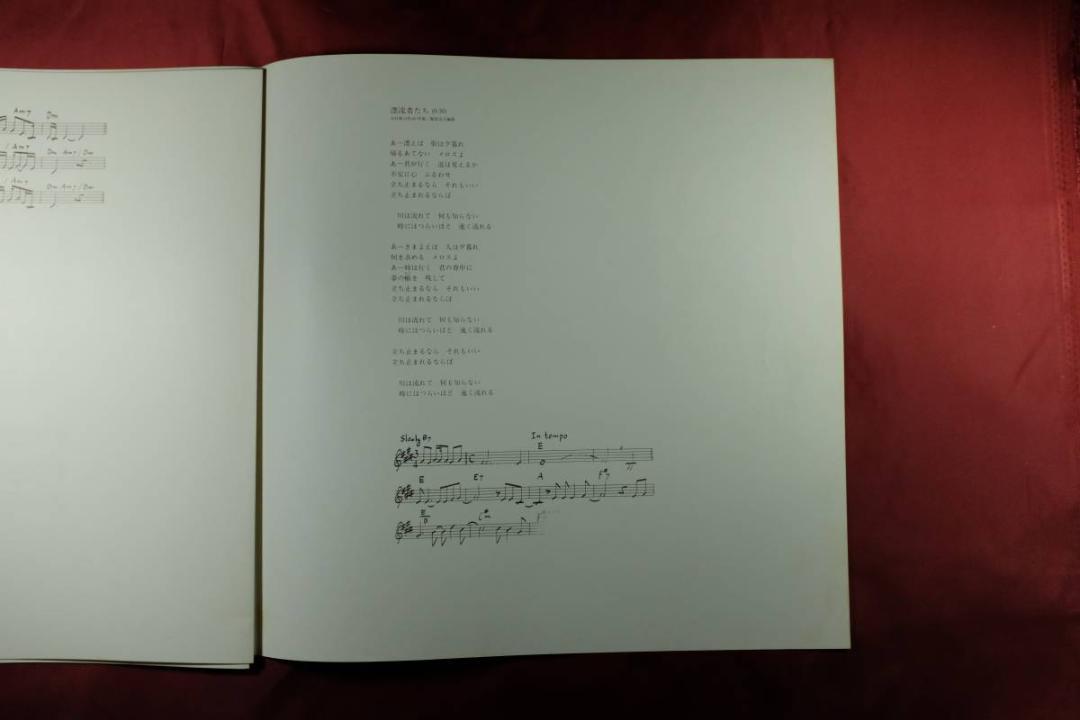 Am7 Dm
/ Am7 Dm Am7 / Dm
/ Am7 Dm Am7 / Dm
漂流者たち
あー漂えば 街は夕暮れ
帰るあてない メロスよ
あー君が行く 道は見えるか
不安に心 ふるわせ
立ち止まるなら それもいい
立ち止まれるならば
川は流れて 何も知らない
時にはつらいほど 速く流れる
あーさまよえば 人は夕暮れ
何を求める メロスよ
あー時は行く 君の背中に
夢の幅を 残して
立ち止まるなら それもいい
立ち止まれるならば
川は流れて 何も知らない
時にはつらいほど 速く流れる
立ち止まるなら それもいい
立ち止まれるならば
川は流れて 何も知らない
時にはつらいほど 速く流れる
Slowly B7 In tempo
E
E E7 A F#7
E/D C#m